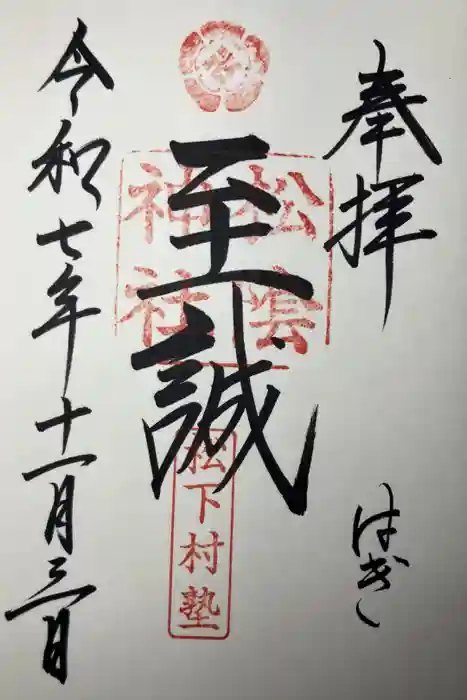 奉拝
はぎ
至誠
松陰
神社
松下村塾
令和七年十一月三日